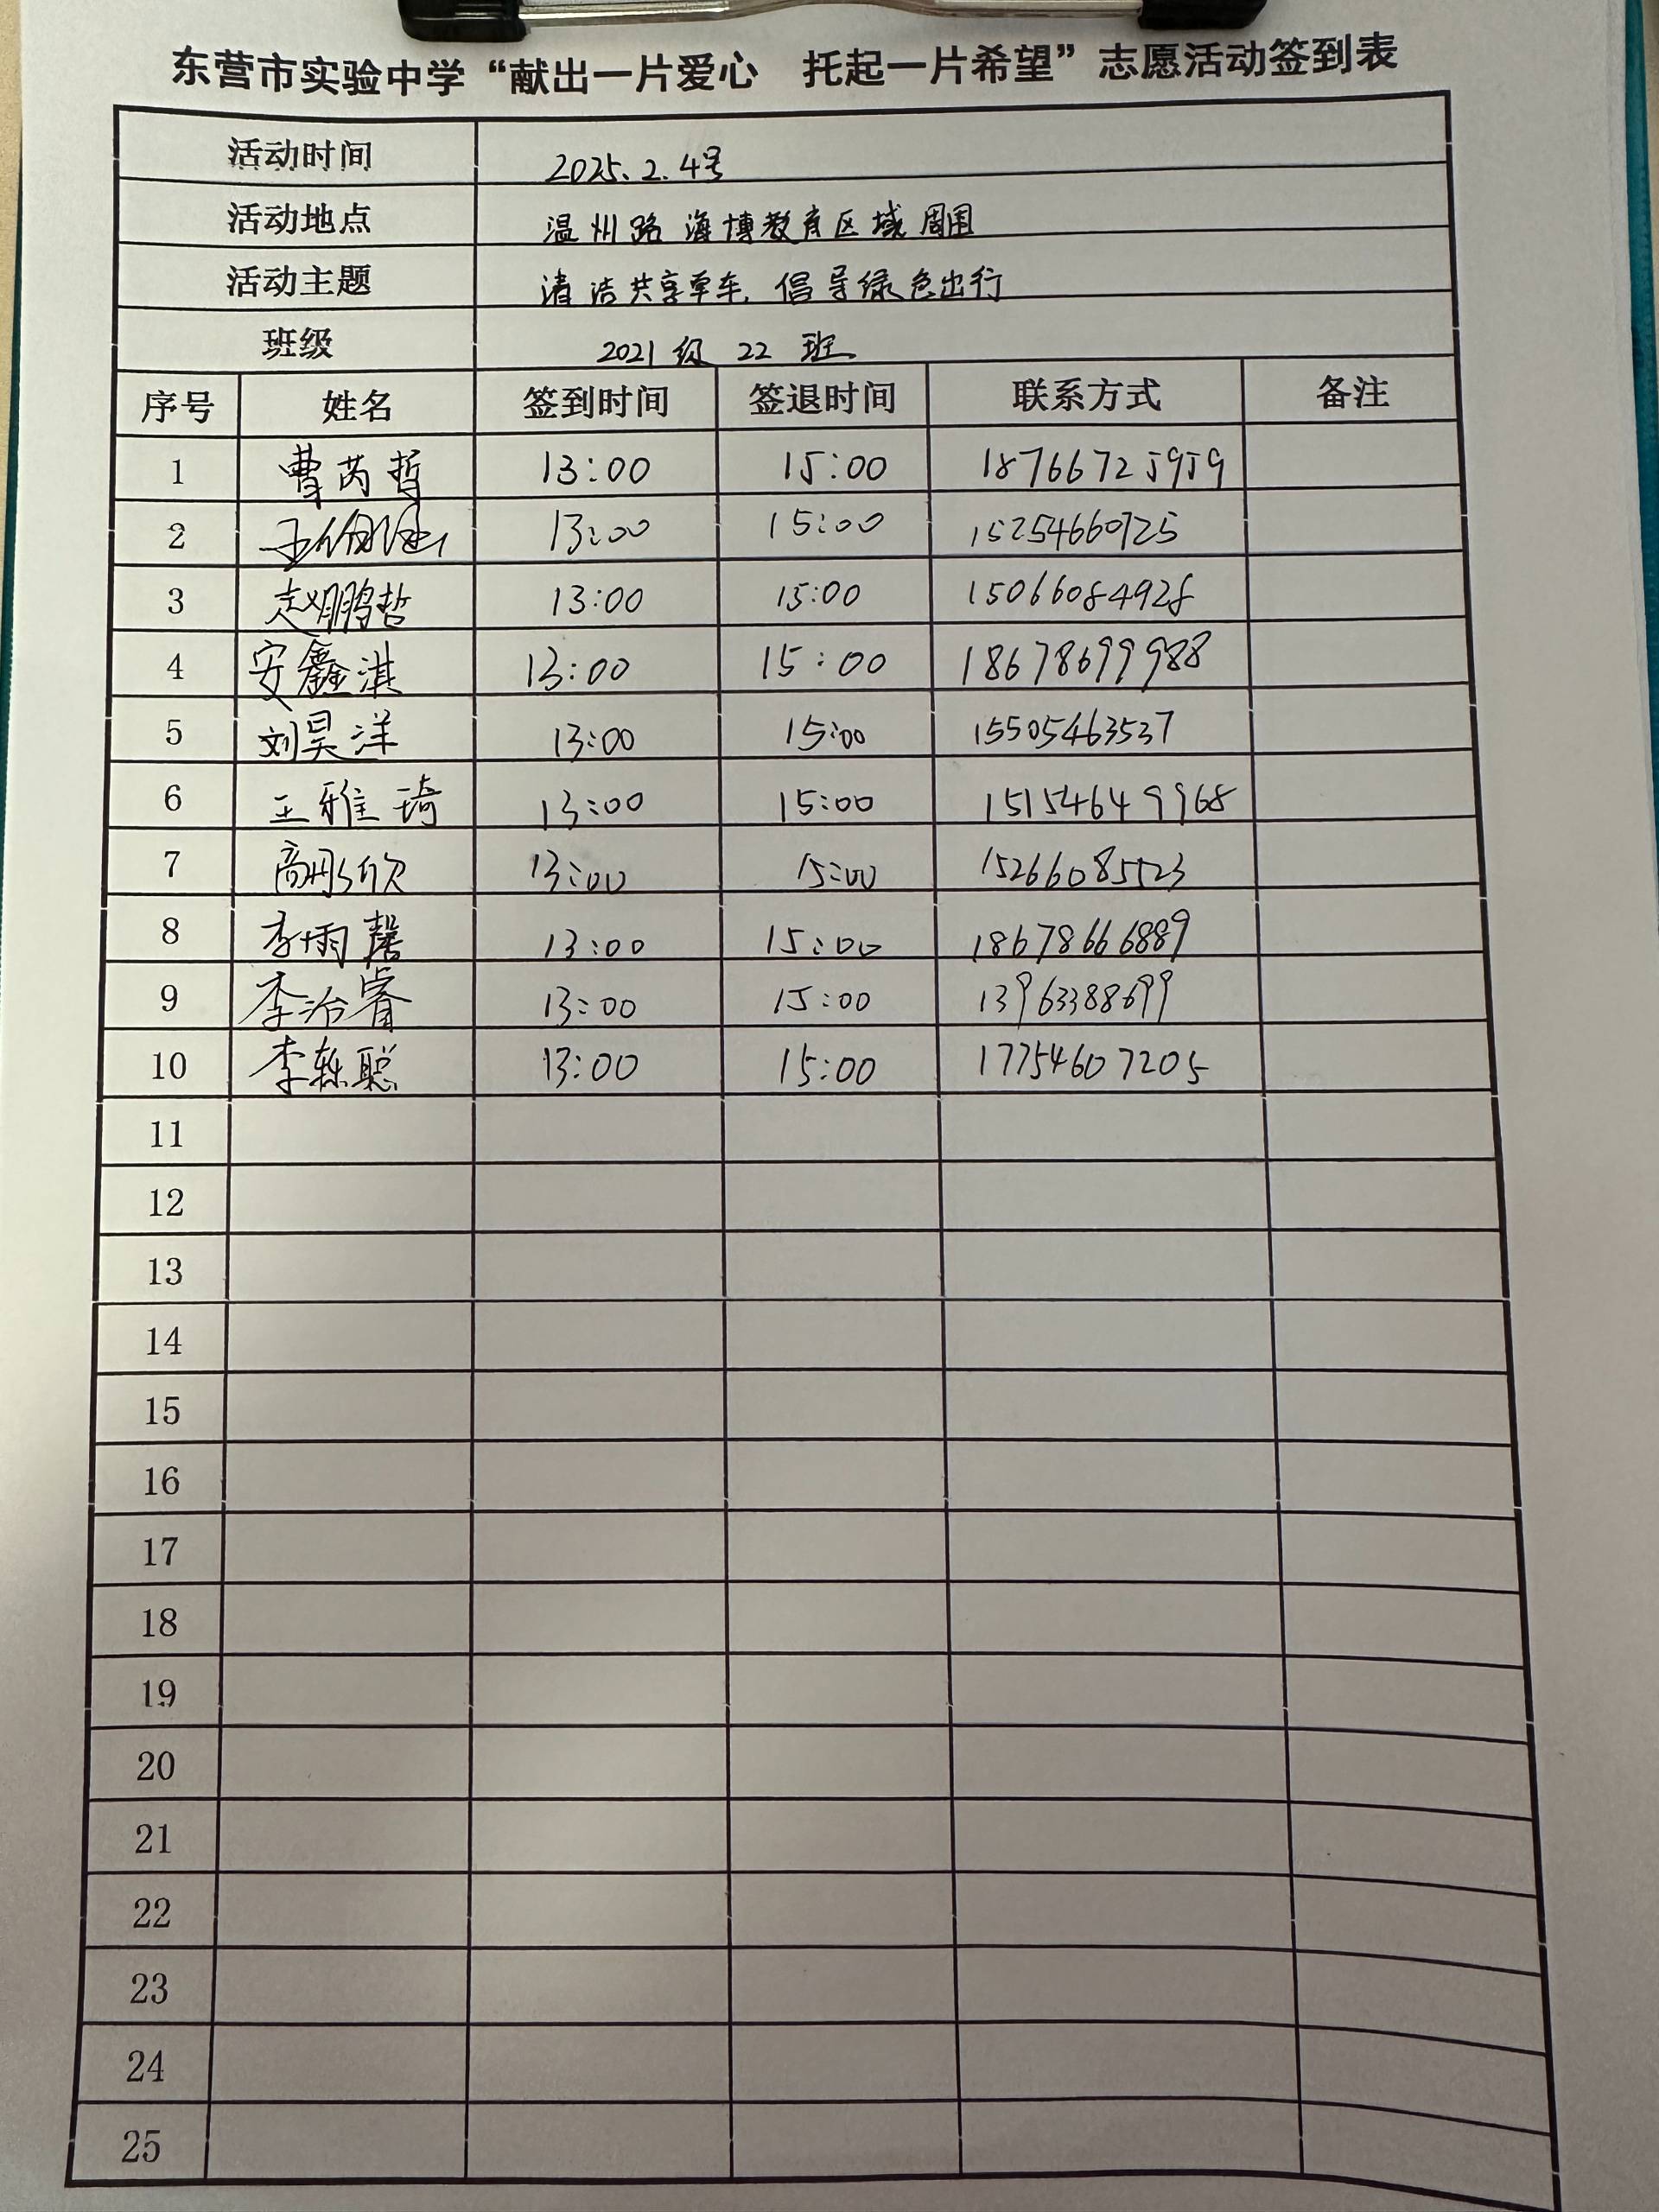 东营市实验中学“献出一片爱心 托起一片希望”志愿活动签到表
活动时间 2025.2.4号
活动地点 温州路海博教育区域周围
活动主题 清洁共享单车,倡导绿色出行
班级 2021级 22 班
序号 姓名 签到时间 签退时间 联系方式 备注
1 曹芮哲 13:00 15:00 18766725959
2 王 13:00 15:00 15254660725
3 赵鹏哲 13:00 15:00 15066084928
4 安鑫淇 13:00 15:00 18678699988
5 刘昊洋 13:00 15:00 15505463537
6 王雅琦 13:00 15:00 15154649968
7 高彤欣 13:00 15:00 15266085523
8 李雨馨 13:00 15:00 18678666889
9 李治睿 13:00 15:00 13963388699
10 李轶聪 13:00 15:00 17754607205
11
12
13
14
15
16
17
18
19
20
21
22
23
24
25